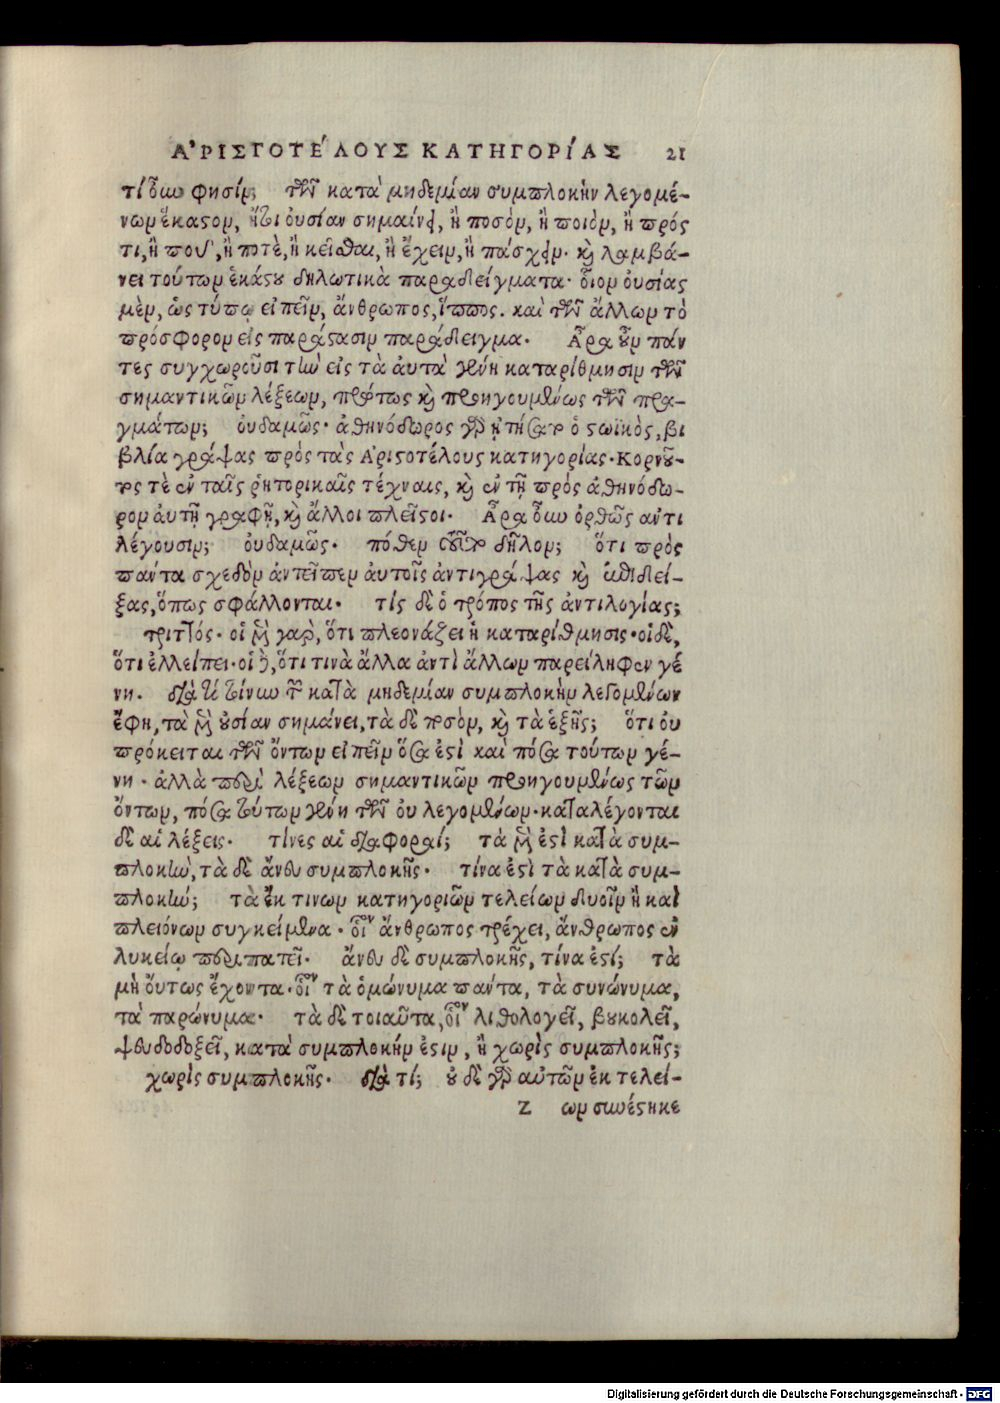 ΑʹΡΙΣΤΟΤΕʹΛΟΥΣ ΚΑΤΗΓΟΡίΑΣ 21
τί οὖν φησίν; τῶν κατὰ μηδεμίαν συμπλοκὴν λεγομέ-
νων ἕκαστον, ἤτοι οὐσίαν σημαίνει, ἢ ποσὸν, ἢ ποιὸν, ἢ πρός
τι, ἢ ποῦ, ἢ ποτὲ, ἢ κεῖσθαι, ἢ ἔχειν, ἢ πάσχειν· καὶ λαμβά-
νει τούτων ἑκάστου δηλωτικὰ παραδείγματα· οἷον οὐσίας
μὲν, ὡς τύπῳ εἰπεῖν, ἄνθρωπος, ἵππος. καὶ τῶν ἄλλων τὸ
πρόσφορον εἰς παράστασιν παράδειγμα· Ἆρα οὖν πάν
τες συγχωροῦσι τὴν εἰς τὰ αὐτὰ γένη καταρίθμησιν τῶν
σημαντικῶν λέξεων, πρώτως καὶ προηγουμένως τῶν πρα-
γμάτων; οὐδαμῶς· ἀθηνόδωρος γὰρ ᾐτιάσατο ὁ στωϊκὸς, βι
βλία γράψας πρὸς τὰς Ἀριστοτέλους κατηγορίας· Κορνοῦ-
τος τὲ ἐν ταῖς ῥητορικαῖς τέχναις, καὶ ἐν τῇ πρὸς ἀθηνόδω-
ρον ἀυτῇ γραφῇ, καὶ ἄλλοι πλεῖστοι· Ἆρα οὖν ὀρθῶς αντι
λέγουσιν; οὐδαμῶς· πόθεν τοῦτο δῆλον; ὅτι πρὸς
παντα σχεδὸν ἀντεῖπεν ἀυτοῖς ἀντιγράψας καὶ ἐπιδεί-
ξας, ὅπως σφάλλονται· τίς δὲ ὁ τρόπος τῆς ἀντιλογίας;
τριττός· οἱ μὲν γαρ, ὅτι πλεονάζει ἡ καταρίθμησις· οἱ δὲ,
ὅτι ἐλλείπει· οἱ δὲ, ὅτι τινὰ ἄλλα ἀντὶ ἄλλων παρείληφεν γέ
νη. διὰ τί τοίνυν τῶν κατὰ μηδεμίαν συμπλοκὴν λεγομένων
ἔφη, τὰ μὲν οὐσίαν σημάνει, τὰ δὲ ποσὸν, καὶ τὰ ἑξῆς; ὅτι οὐ
πρόκειται τῶν ὄντων εἰπεῖν ὅσα ἐστὶ καὶ πόσα τούτων γέ-
νη· ἀλλὰ περὶ λέξεων σημαντικῶν προηγουμένως τῶν
ὄντων, πόσα τούτων γένη τῶν οὐ λεγομένων· καταλέγονται
δὲ αἱ λέξεις· τίνες αἱ διαφοραί; τὰ μὲν ἐστὶ κατὰ συμ-
πλοκὴν, τὰ δὲ ἄνευ συμπλοκῆς· τίνα ἐστὶ τὰ κατὰ συμ-
πλοκήν; τὰ ἔκ τινων κατηγοριῶν τελείων δυοῖν ἢ καὶ
πλειόνων συγκείμενα· οἷον ἄνθρωπος τρέχει, ἄνθρωπος ἐν
λυκείῳ περιπατεῖ· ἄνευ δὲ συμπλοκῆς, τίνα ἐστί; τὰ
μὴ ὅυτως ἔχοντα· οἷον τὰ ὁμώνυμα παντα, τὰ συνώνυμα,
τὰ παρώνυμα· τὰ δὲ τοιαῦτα, οἷον λιθολογεῖ, βουκολεῖ,
ψευδοδοξεῖ, κατὰ συμπλοκήν ἐστιν, ἢ χωρὶς συμπλοκῆς;
χωρὶς συμπλοκῆς· διὰ τί; οὐ δὲ γὰρ αὐτῶν ἐκ τελεί-
Z ων συνέστηκε
Digitalisierung gefördert durch die Deutsche Forschungsgemeinschaft · DFG